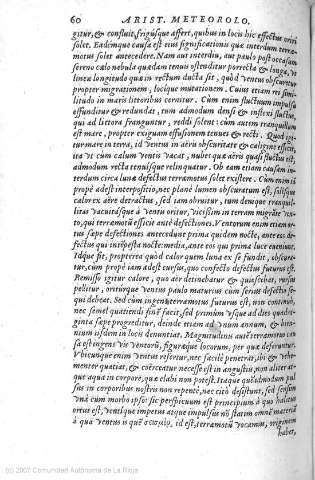 60 ARIST. METEOROLO.
gitur, & confluit, frigusque affert, quibus in locis hic effectus oriri
solet. Eademque causa est eius significationis quæ interdum terræ-
motus solet antecedere. Nam aut interdiu, aut paulo post occasum
sereno cælo nubecula quædam tenuis ostenditur porrecta & longa, vt
linea longitudo quæ in rectum ducta sit, quòd ventus obscuretur
propter migrationem, locique mutationem. Cuius etiam rei simi-
litudo in maris litoribus cernitur. Cùm enim fluctuum impulsa
effunditur & redundat, tum admodum densi & inflexi fluctus,
qui ad littora franguntur, reddi solent: cùm autem tranquillum
est mare, propter exiguam effusionem tenues & recti. Quod igi-
tur mare in terra, id ventus in aëris obscuritate & caligine efficit,
ita vt cùm calum vento vacat, nubes quæ aëris quasi fluctus est,
admodum recta tenuísque relinquatur. Ob eam etiam causam in-
terdum circa lunæ defectus terræmotus solet existere. Cùm enim iã
propè adest interpositio, nec planè lumen obscuratum est, salísque
calor ex aëre detractus, sed iam obruitur, tum denique tranquil-
litas vacuitásque à vento oritur, vicissim in terram migrãte ven-
to, qui terræmotũ efficit antè defectiones. Ventorum enim etiam or-
tus sæpe defectiones antecedunt prima quidem nocte, ante eos de-
fectus qui intẽpesta nocte: media, ante eos qui prima luce eueniunt.
Idque fit, propterea quòd calor quem luna ex se fundit, obscura-
tur, cùm propè iam adest cursus, quo confecto defectus futurus est.
Remisso igitur calore, quo aër detinebatur & quiescebat, rursus
pellitur, oritúrque ventus paulo maturius cùm seriùs defectio se-
qui debeat. Sed cùm ingens terræmotus futurus est, non continuò,
nec semel quatiendi finẽ facit, sed primùm vsque ad dies quadra-
ginta sæpe progreditur, deinde etiam ad vnum annum, & bien-
nium iisdem in locis denuntiat. Magnitudinis autẽ terræmotus cau-
sa est ingens vis ventorũ, figuræque locorum, per quæ deferuntur.
Vbicunque enim ventus refertur, nec facilè penetrat, ibi & vehe-
menter quatias, & coërceatur necesse est in angustiis, non aliter at-
que aqua in corpore, quæ elabi non potest. Itaque quẽadmodum pul-
sus in corporibus nostris non repentè, nec citò desistunt, sed sensim
vnà cum morbo ipso: sic perspicuum est principium à quo halitus
ortus est, ventíque impetus atque impulsus nõ statim omnẽ materiã
à qua ventus is quẽ occasio, id est, terræmotũ vocamus, originem
habet,
(c) 2007 Comunidad Autónoma de La Rioja